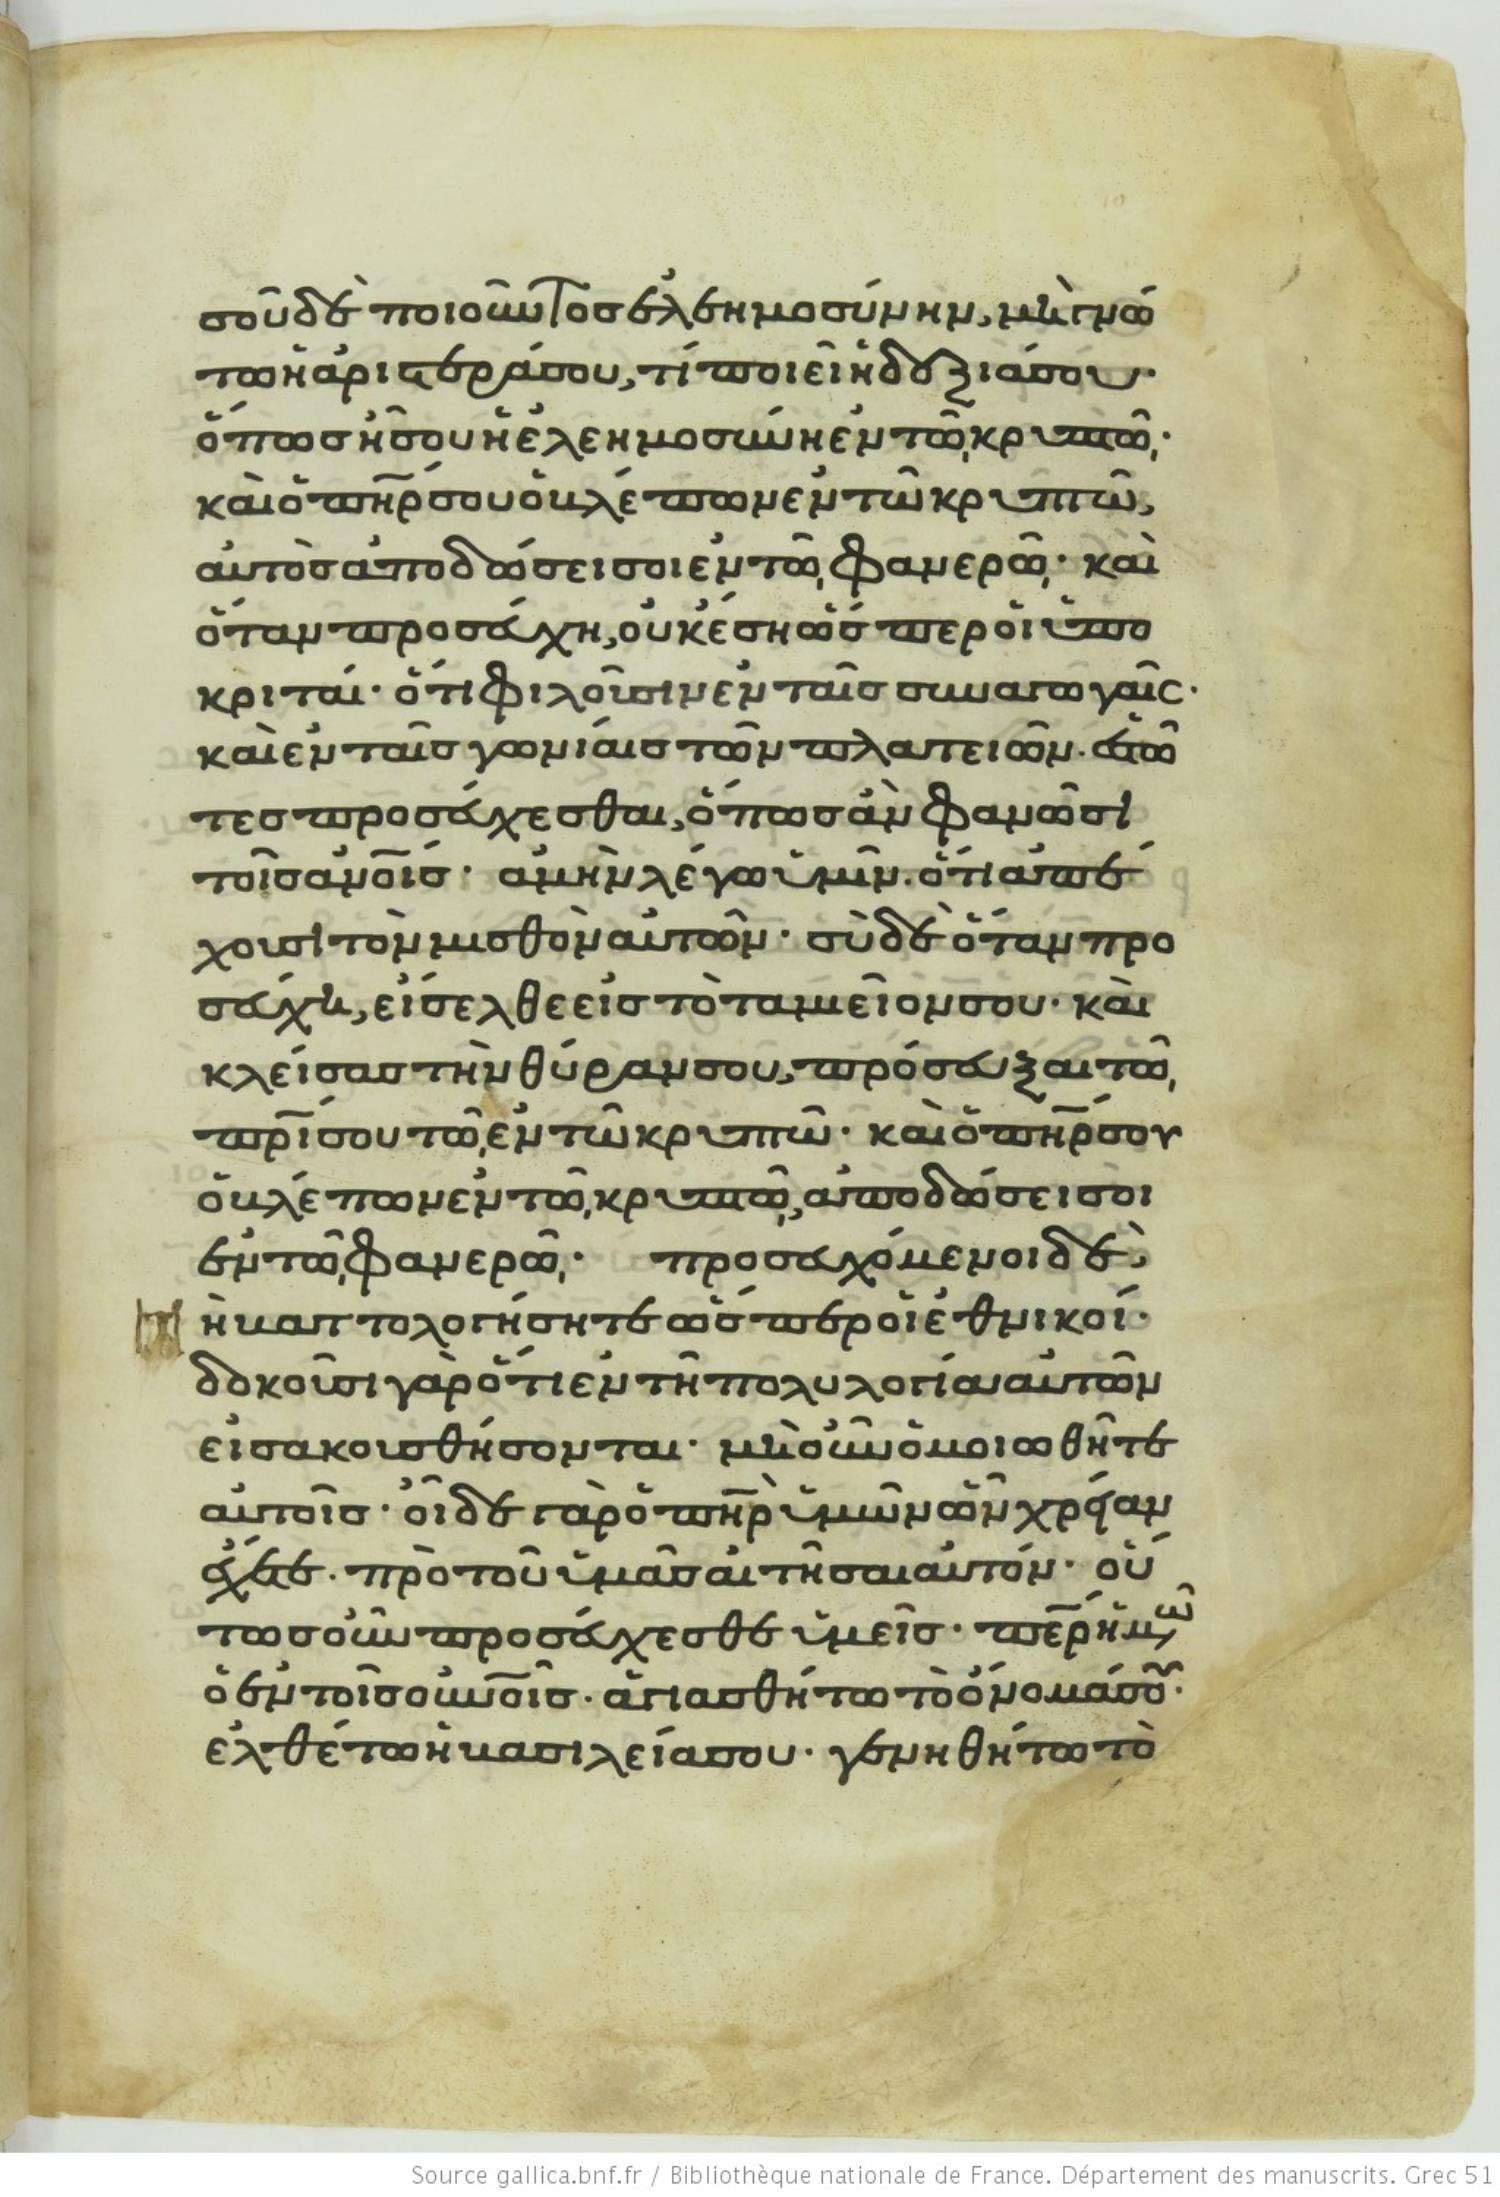 σοῦ δὲ ποιοῦντος ἐλεημοσύνην, μὴ γνώ
τω ἡ ἀριστερά σου, τί ποιεῖ ἡ δεξιά σου·
ὅπως ἦ σου ἡ ἐλεημοσύνη ἐν τῶ, κρυπτῶ,·
καὶ ὁ πη̅ρ σου ὁ βλέπων ἐν τῶ κρυπτῶ,
αὐτὸς ἀποδώσει σοι ἐν τῶ, φανερῶ,· καὶ
ὅταν προσεύχη, οὐκ ἔση ὥσπερ οἱ ὑπο
κριταί· ὅτι φιλοῦσιν ἐν ταῖς συναγωγαῖς·
καὶ ἐν ταῖς γωνίαις τῶν πλατειῶν. ἑστῶ
τες προσεύχεσθαι, ὅπως ἂν φανῶσι
τοῖς ἀν̅οις· ἀμὴν λέγω ὑμῖν. ὅτι ἀπέ
χουσι τὸν μισθὸν αὐτῶν· σὺ δὲ ὅταν προ
σεύχη, εἴσελθε εἰς τὸ ταμιεῖον σου· καὶ
κλείσας τὴν θύραν σου, πρόσευξαι τῶ,
πρ̅ι σου τῶ, ἐν τῶ κρυπτῶ· καὶ ὁ πη̅ρ σου
ὁ βλέπων ἐν τῶ, κρυπτῶ, ἀποδώσει σοι
ἐν τῶ, φανερῶ,· προσευχόμενοι δὲ,
μὴ βαττολογήσητε ὥσπερ οἱ ἐθνικοί·
δοκοῦσι γὰρ ὅτι ἐν τῆ πολυλογία αὐτῶν
εἰσακουσθήσονται· μὴ οὖν ὁμοιωθῆτε
αὐτοῖς· οἶδε γὰρ ὁ πη̅ρ ὑμῶν ὧν χρείαν
ἔχετε. πρὸ τοῦ ὑμᾶς αἰτῆσαι αὐτόν· οὕ
τως οὖν προσεύχεσθε ὑμεῖς· πε̅ρ ἡμῶν
ὁ ἐν τοῖς οὐν̅οῖς. ἁγιασθήτω τὸ ὄνομά σου·
ἐλθέτω ἡ βασιλεία σου· γενηθήτω τὸ
Source gallica.bnf.fr / Bibliothèque nationale de France. Département des manuscrits. Grec 51